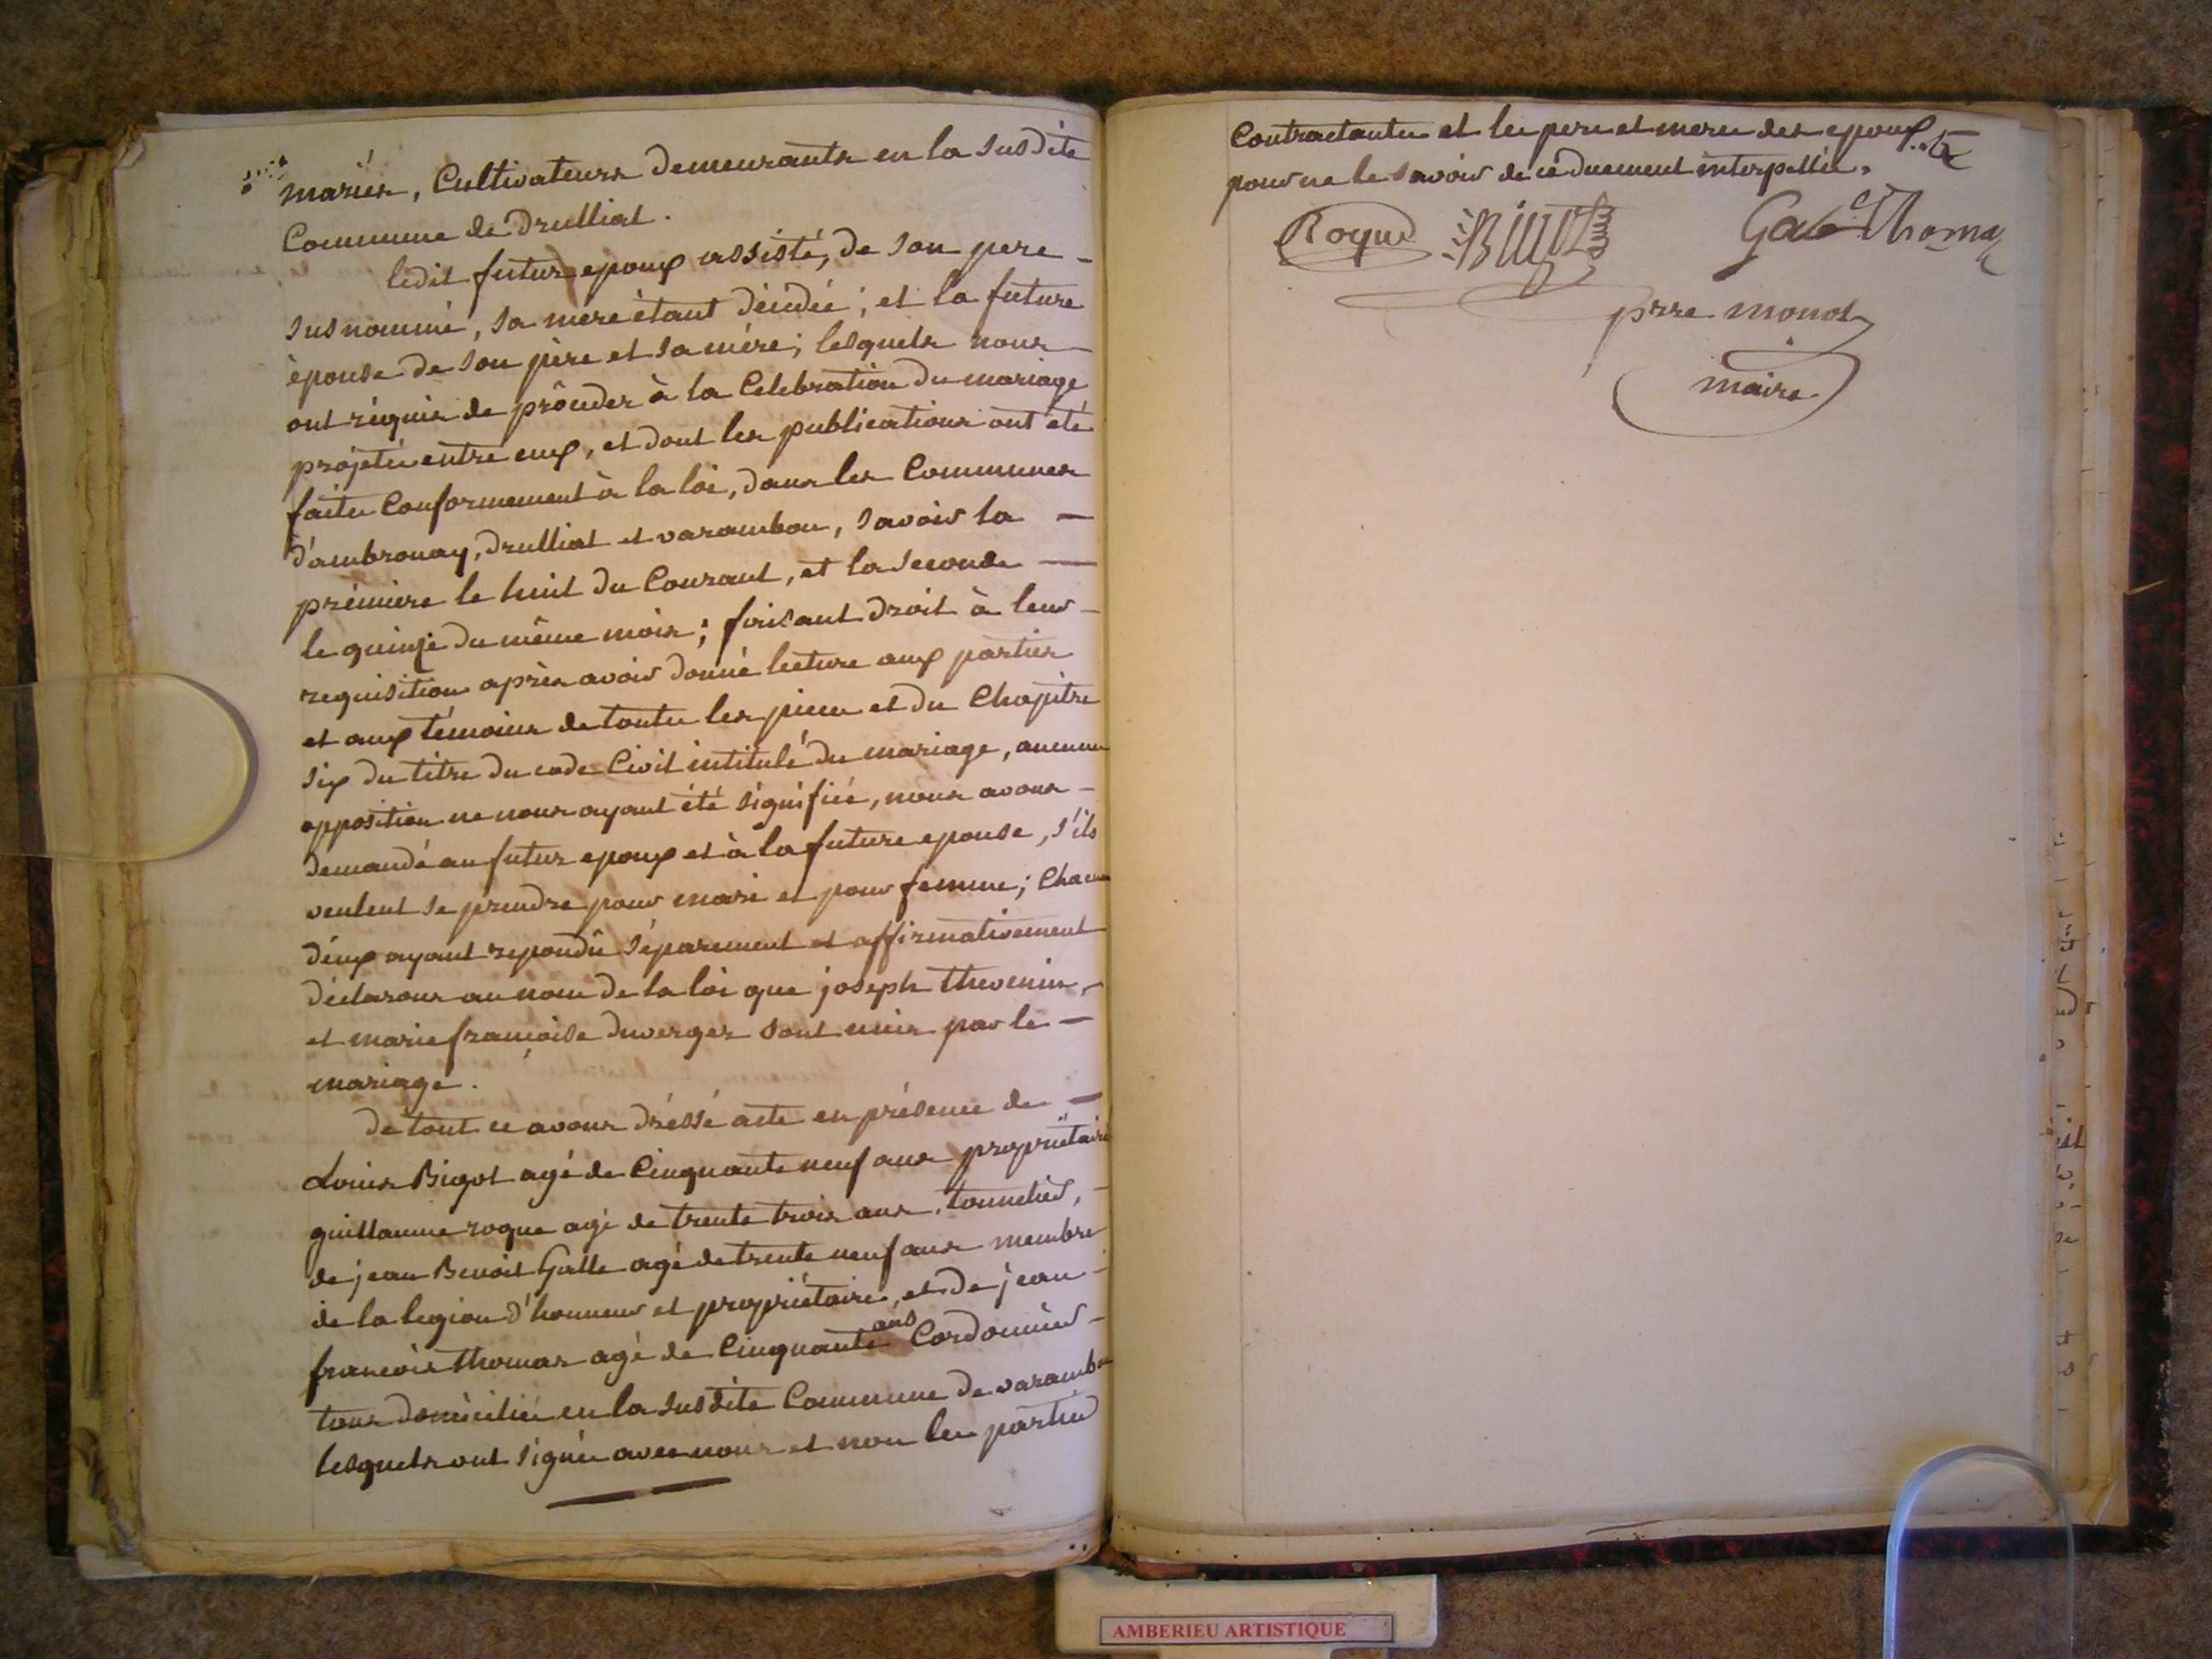 mariés, Cultivateurs demeurants en la susdite
Commune de Drulliat.
ledit futur epoux assisté, de son pere -
susnommé, sa mere étant décédée; et la future
épouse de son père et sa mère; lesquels nous
ont réquis de procéder à la Celebration du mariage
projeté entre eux, et dont les publications ont été
faites Conformement à la loi, dans les Communes
d'ambronay, Drulliat et varambon, savoir la -
prémiere le huit du Courant, et la seconde -
le quinze du même mois; faisant droit à leur -
requisition après avoir donné lecture aux parties
et aux témoins de toutes les pieces et du Chapitre
six du titre du code Civil intitulé du mariage, aucune
opposition ne nous ayant été signifiée, nous avons -
demandé au futur epoux et à la future epouse, s'ils
veulent se prendre pour mari et pour femme; Chacun
d'eux ayant repondu séparement et affirmativement
déclarons au nom de la loi que joseph thevenin, -
et marie françoise duverger sont unis par le -
mariage.
de tout ce avons dréssé acte en présence de -
Louis Bigot agé de Cinquante neuf ans propriétaire
guillaume roque agé de trente trois ans, tonnelier, -
de jean Benoit Galle agé de trente neuf ans membre
de la legion d'honneur et propriétaire, et de jean -
françois thomas agé de Cinquante ans Cordonnier -
tous domicilié en la susdite Commune de varambon
lesquels ont signés avec nous et non les parties
Contractantes et les pere et mere des epoux
pour ne le savoir de ce duement interpellés.
Roque Thomas
prre monot
maire
AMBERIEU ARTISTIQUE